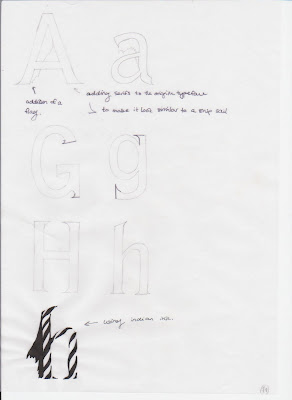 A a
addition of a adding serifs to the empire typeface
flag. to make it look similar to a ship sail
G g
H h
h ← using indian ink.